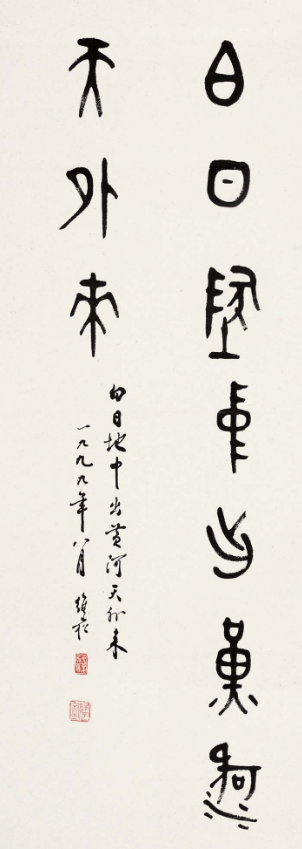 白日地中出黃河
天外來
白日地中出黃河天外來
一九九九年八月